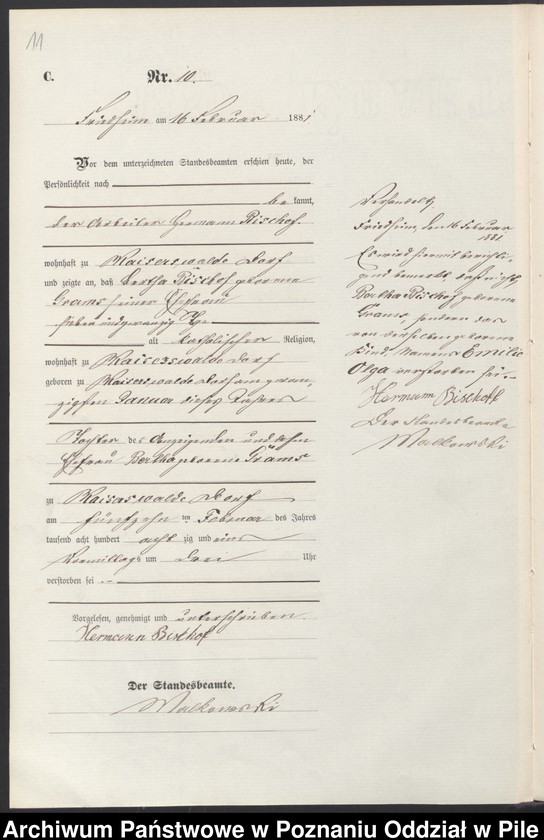 11
C.
Nr. 10.
Friedheim am 16 Februar 1881
Vor dem unterzeichneten Standesbeamten erschien heute, der
Persönlichkeit nach
be kannt,
der Arbeiter Hermann Bischof.
wohnhaft zu Kaiserswalde Dorf
und zeigte an, daß Bertha Bischof geborene
Grams seiner Ehefrau
sieben und zwanzig Tage
alt katholischer Religion,
wohnhaft zu Kaiserswalde Dorf
geboren zu Kaiserswalde Dorf am zwan
zigsten Januar dieses Jahres
Tochter des Anzeigenden und dessen
Ehefrau Bertha geborene Grams
zu Kaiserswalde Dorf
am fünfzehn ten Februar des Jahres
tausend acht hundert acht zig und eins
Vormittags um drei Uhr
verstorben sei
Vorgelesen, genehmigt und unterschrieben
Hermann Bischof
Der Standesbeamte.
Malkowski
Verhandelt,
Friedheim, den 16 Februar
1881
Es wird hiermit berichti-
gend bemerkt daß nicht
Bertha Bischof geborene
Grams, sondern das
von derselben geborene
Kind, Namens Emilie
Olga verstorben sei.
Hermann Bischoff
Der Standesbeamte
Malkowski
Archiwum Państwowe w Poznaniu Oddział w Pile